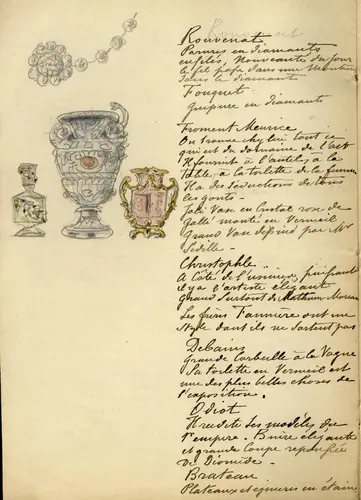 Rouvenat
Parures en diamants
enfilés, Nouveautés du jour
le fil passe dans une monture
dans le diamants
Fouquet
guipure en diamants
Froment Meurice
On trouve chez lui tout ce
qui est du domaine de l'art
Il fournit à l'autel, à la
table à la toilette de la femme
Il a des séductions de tous
les gouts -
Joli Vase en Cristal rose de
Gallé monté en Vermeil
Grand Vase dessiné par Mr
Sédille -
Christophle -
A Côté de l'usinier,
il y a l'artiste élégant
Grand Surtout de Mathurin Moreau
Les frères Fannière ont un
Style dont ils ne sortent pas
Debains
Grande Corbeille à la Vague
Sa toilette en Vermeil est
une des plus belles choses de
l'exposition.
Odiot
Il réédite les modèles du
1er empire. Buire élégante
et grande Coupe repoussée
de Diomède -
Brateau
Plateaux et aiguières en étain